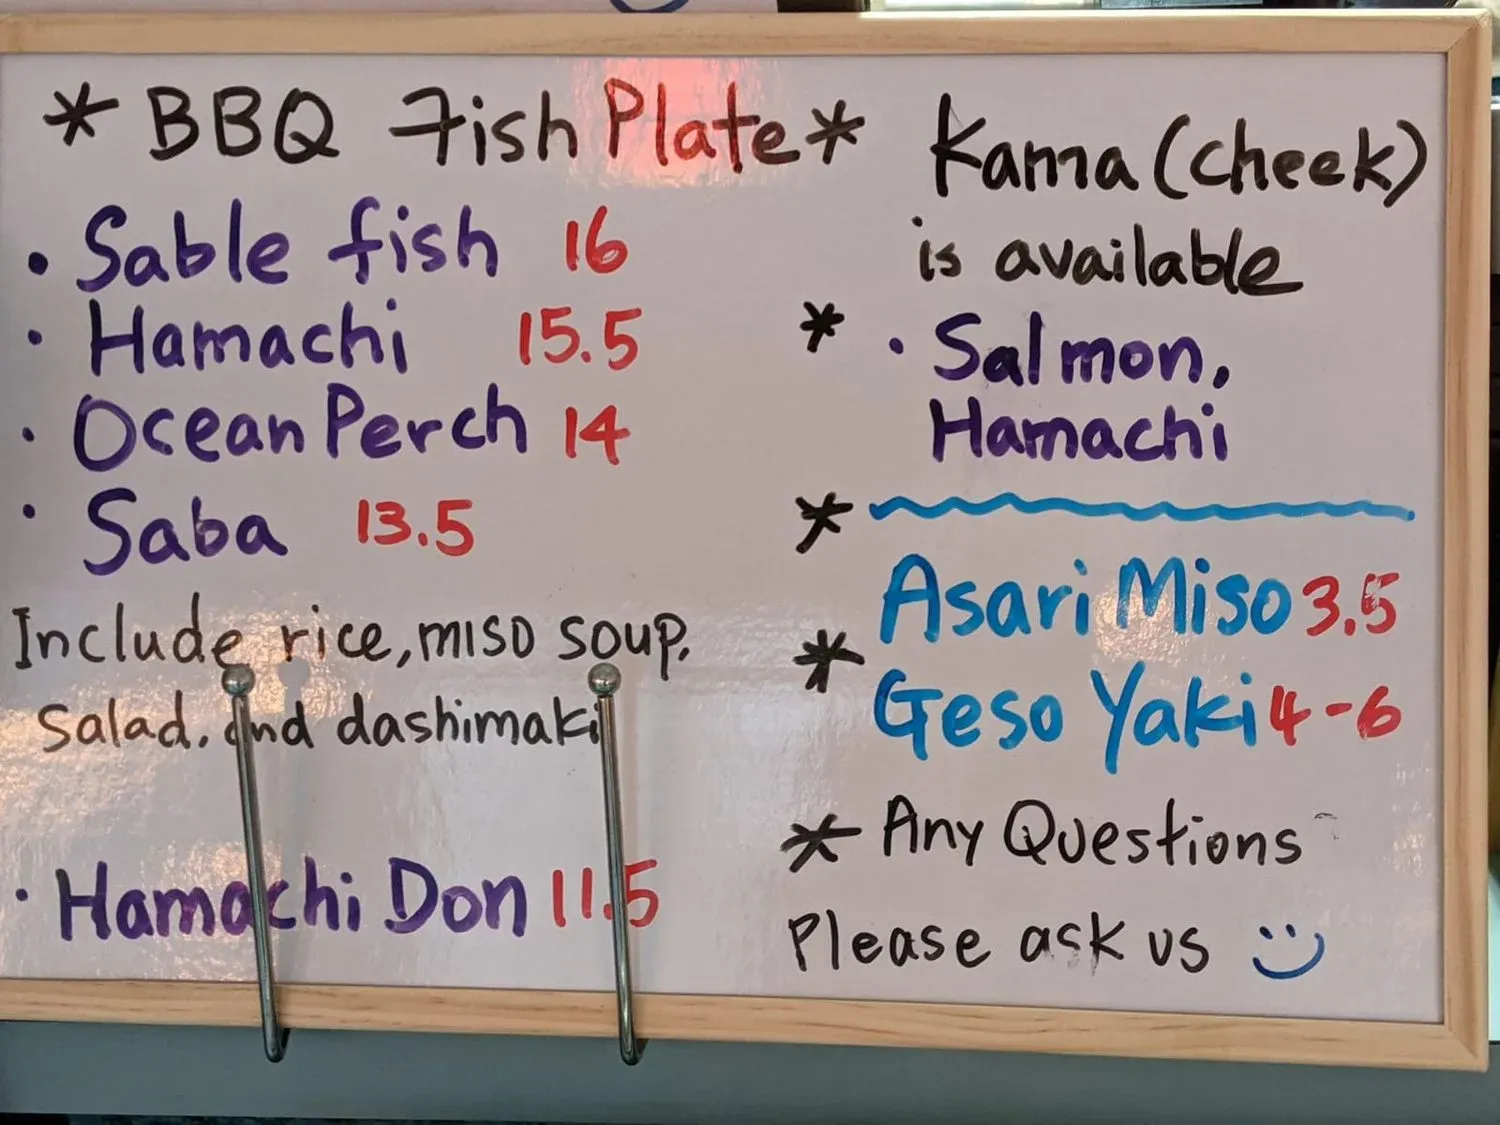 * BBQ Fish Plate *
• Sable fish 16
• Hamachi 15.5
• Ocean Perch 14
• Saba 13.5
Include rice, miso soup,
salad, and dashimaki
• Hamachi Don 11.5
Kama (cheek)
is available
* • Salmon,
Hamachi
*
Asari Miso 3.5
* Geso Yaki 4-6
* Any Questions
Please ask us